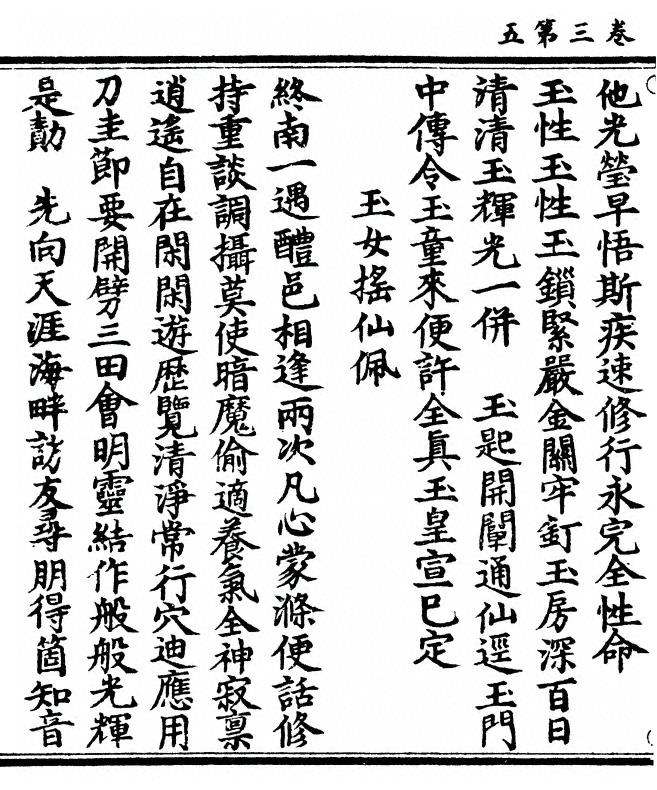 卷三第五
他光瑩早悟斯疾速修行永完全性命
玉性玉性玉鎖緊嚴金關牢釘玉房深百日
清清玉輝光一併　玉匙開闡通仙逕玉門
中傳令玉童來便許全真玉皇宣已定
玉女搖仙佩
終南一遇醴邑相逢兩次凡心蒙滌便話修
持重談調攝莫使暗魔偷適養氣全神寂稟
逍遙自在閑閑遊歷覽清淨常行穴迪應用
刀圭節要開劈三田會明靈結作般般光輝
是勣　先向天涯海畔訪友尋朋得箇知音